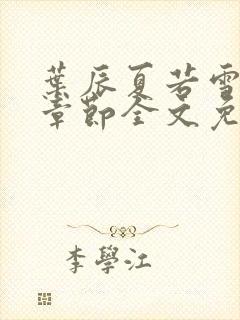 葉辰夏若雪
章節全文免
李學江